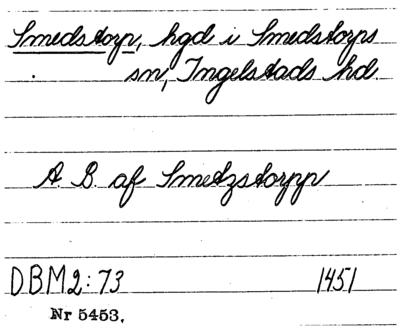 Smedstorp, hgd i Smedstorps
sn, Ingelstads hd
A. B. af Smetzstorpp
DBM2:73 1451
Nr 5453.